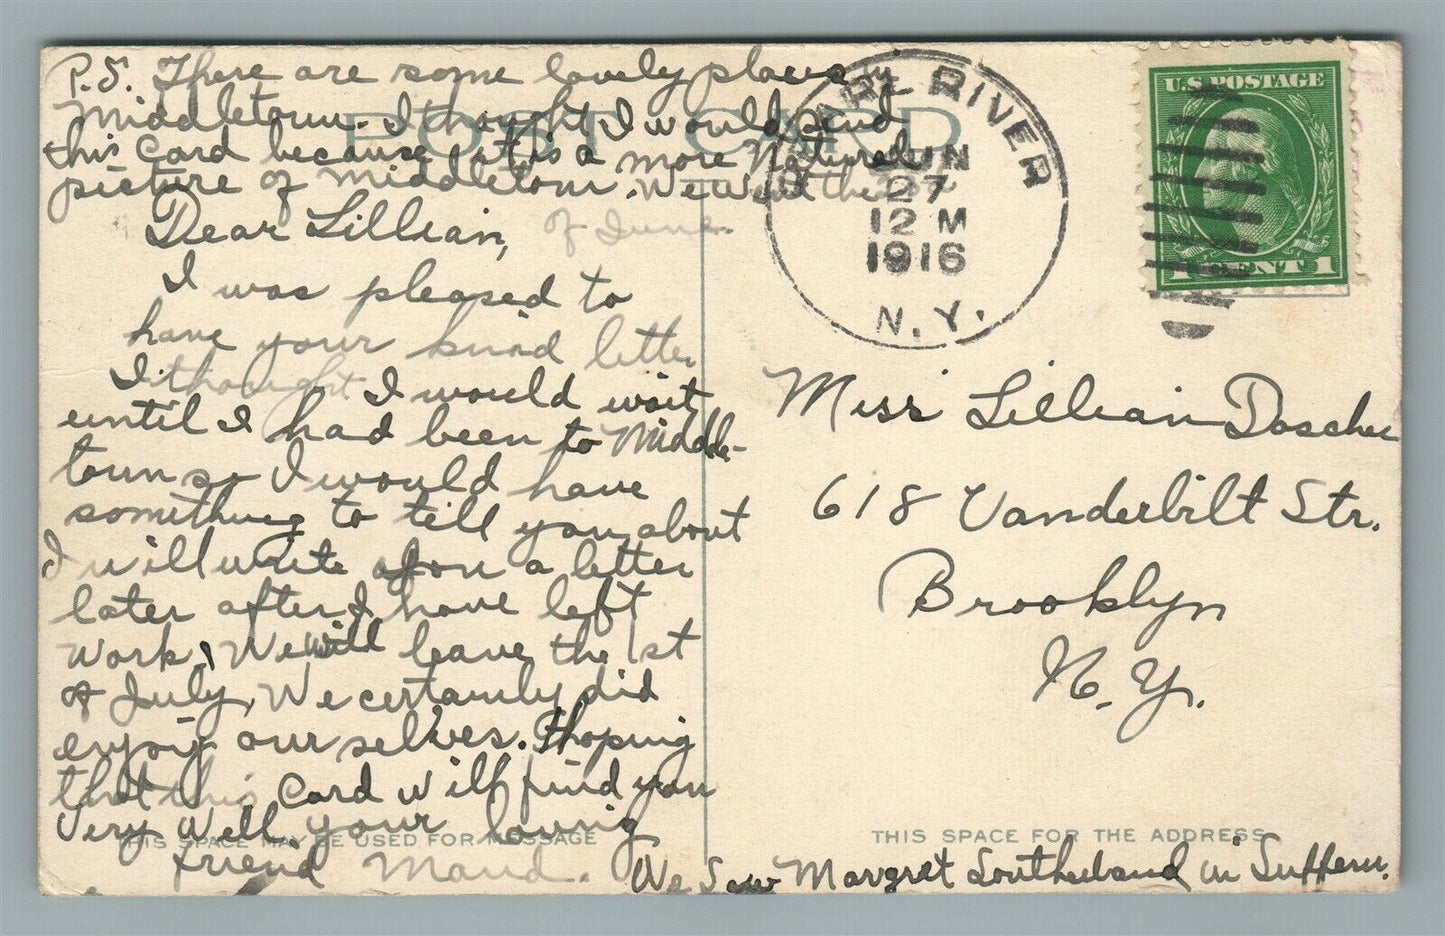 P.S. There are some lovely places in
Middletown. I thought I would send
this card because it is a more Natural
picture of Middletown. We went the
of June.
Dear Lillian,
I was pleased to
have your kind letter
I thought I would wait
until I had been to Middle-
town so I would have
something to tell you about
I will write you a letter
later after I have left
work, We will leave the 1st
of July, We certainly did
enjoy our selves. Hoping
that this card will find you
Very Well your loving
friend Maud.
We Saw Margret Southerland in Suffern.
POST CARD
THIS SPACE MAY BE USED FOR MESSAGE
PEARL RIVER
JUN
27
12 M
1916
N.Y.
U.S. POSTAGE
1 CENT 1
Miss Lillian Doscher
618 Vanderbilt Str.
Brooklyn
N.Y.
THIS SPACE FOR THE ADDRESS